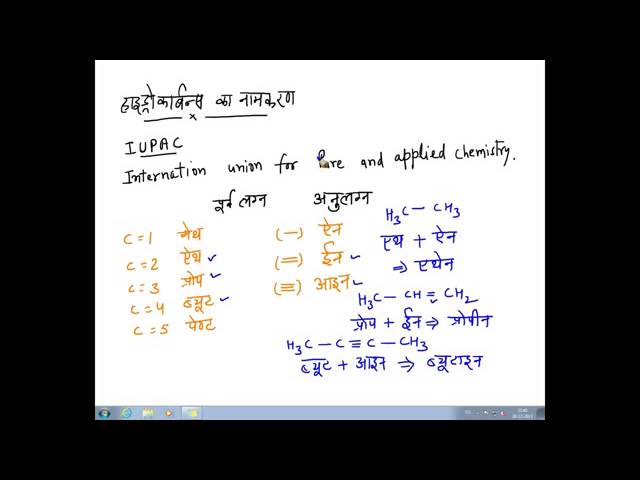 हाइड्रोकार्बन्स का नामकरण
IUPAC
Internation union for Pure and applied chemistry.
पूर्वलग्न अनुलग्न
C=1 मेथ (—) ऐन
C=2 ऐथ (=) ईन
C=3 प्रोप (≡) आइन
C=4 ब्यूट
C=5 पेण्ट
H₃C — CH₃
एथ + ऐन
⇒ एथेन
H₃C — CH = CH₂
प्रोप + ईन ⇒ प्रोपीन
H₃C — C ≡ C — CH₃
ब्यूट + आइन ⇒ ब्यूटाइन